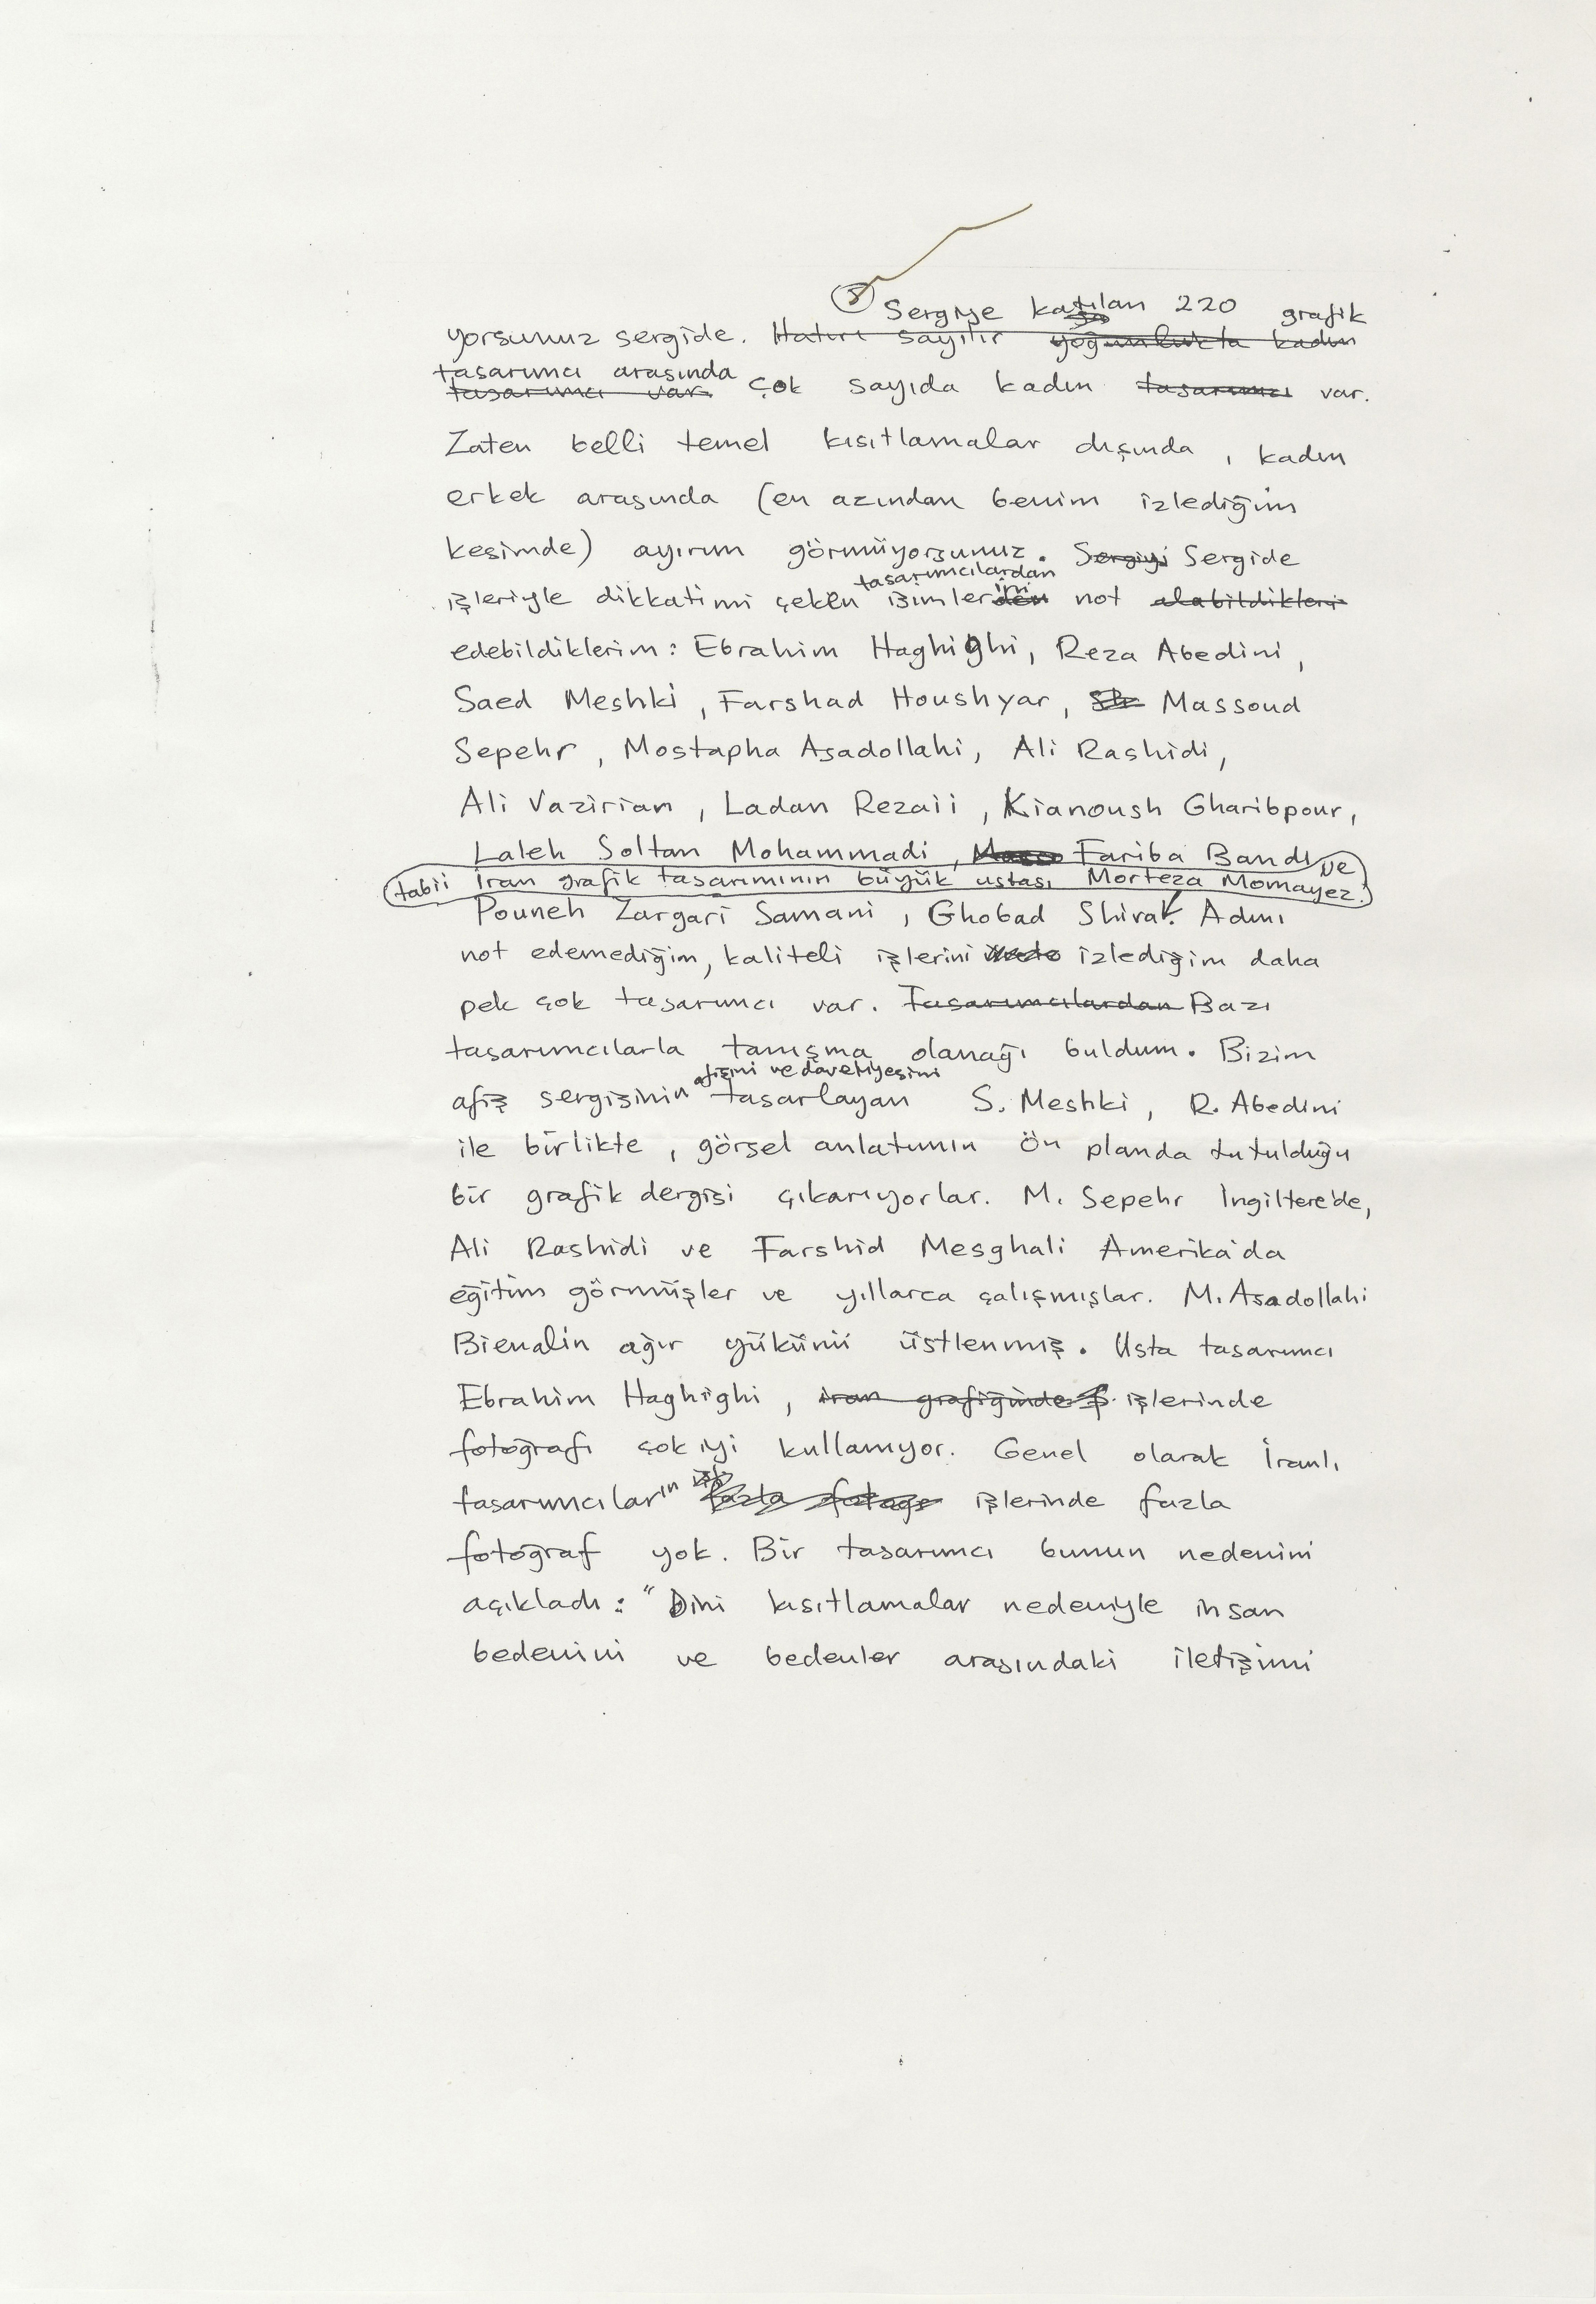 8 Sergiye katılan 220 grafik
yorsunuz sergide. Hatırı sayılır yoğunlukta kadın
tasarımcı arasında
tasarımcı var çok sayıda kadın tasarımcı var.
Zaten belli temel kısıtlamalar dışında, kadın
erkek arasında (en azından benim izlediğim
kesimde) ayırım görmüyorsunuz. Sergiyi Sergide
tasarımcılardan ini
işleriyle dikkatimi çeken isimlerden not alabildikleri
edebildiklerim: Ebrahim Haghighi, Reza Abedini,
Saed Meshki, Farshad Houshyar, Massoud
Sepehr, Mostapha Asadollahi, Ali Rashidi,
Ali Vazirian, Ladan Rezaii, Kianoush Gharibpour,
Laleh Soltan Mohammadi, Fariba Bandi ve
tabii İran grafik tasarımının büyük ustası Morteza Momayez.
Pouneh Zargari Samani, Ghobad Shiva. Adını
not edemediğim, kaliteli işlerini izlediğim daha
pek çok tasarımcı var. Tasarımcılardan Bazı
tasarımcılarla tanışma olanağı buldum. Bizim
afişini ve davetiyesini
afiş sergisinin tasarlayan S. Meshki, R. Abedini
ile birlikte, görsel anlatımın ön planda tutulduğu
bir grafik dergisi çıkarıyorlar. M. Sepehr İngiltere'de,
Ali Rashidi ve Farshid Mesghali Amerika'da
eğitim görmüşler ve yıllarca çalışmışlar. M. Asadollahi
Bienalin ağır yükünü üstlenmiş. Usta tasarımcı
Ebrahim Haghighi, iran grafiğinde f işlerinde
fotoğrafı çok iyi kullanıyor. Genel olarak İranlı
tasarımcıların fazla fotoğr işlerinde fazla
fotoğraf yok. Bir tasarımcı bunun nedenini
açıkladı: "Dini kısıtlamalar nedeniyle insan
bedenini ve bedenler arasındaki iletişimi